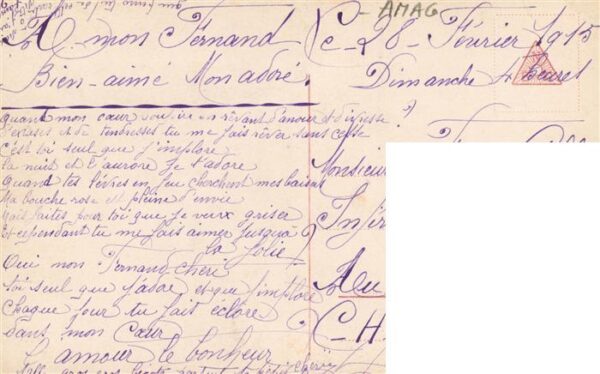 AMAG
A mon Fernand
Bien-aimé Mon adoré.
Le 28 Février 1915
Dimanche 4 heures
Quant mon cœur soupire en rêvant d'amour et d'ivresse
et de tendresses tu me fais rêver sans cesse
C'est toi seul que j'implore
la nuit et l'aurore je t'adore
Quant tes lèvres en feu cherchent mes baisers
Ma bouche rose et pleine d'envie
faites pour toi que je veux griser
Et cependant tu me fais aimer jusqu'à
la folie
Oui mon Fernand chéri
toi seul que j'adore et que j'implore
Chaque jour tu fait éclore
Dans mon Cœur
L'amour le bonheur
Mille gros gros
Monsieur
Infir
Au
C. H.